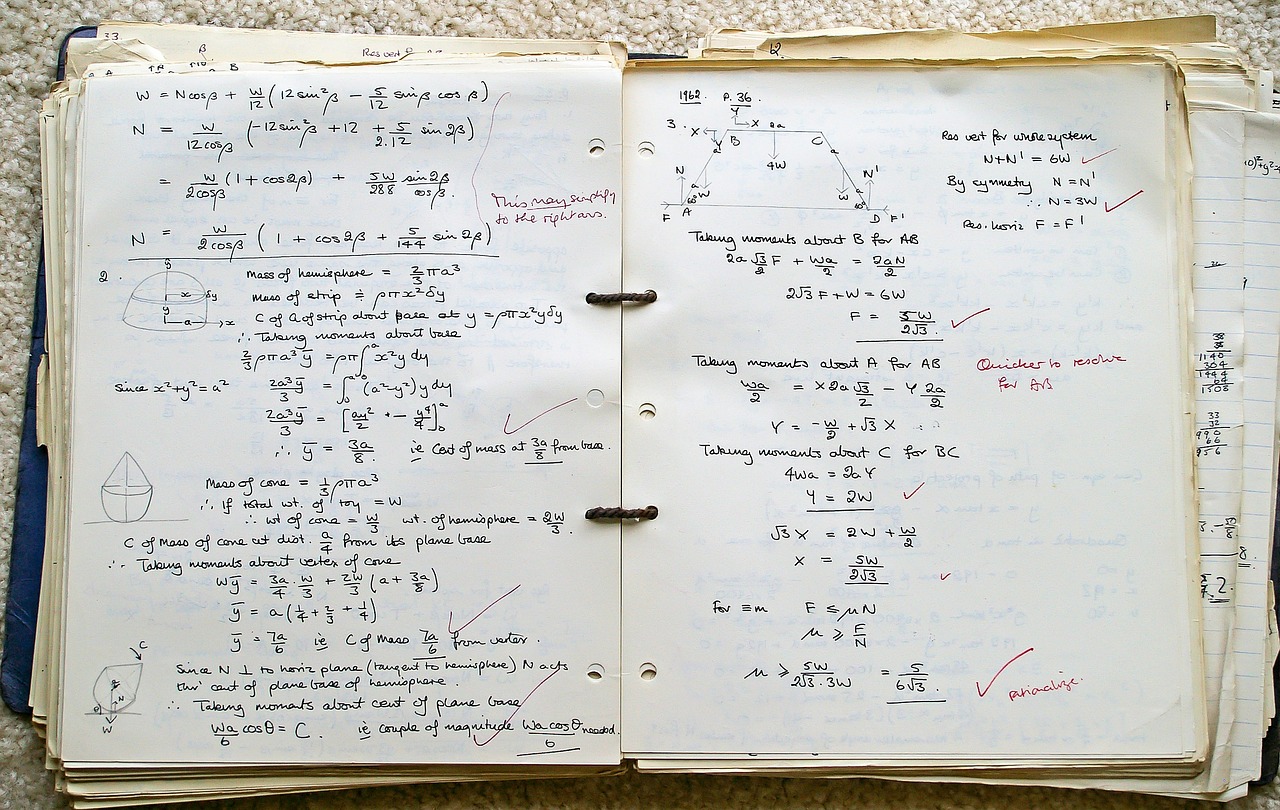 33.
β
Res vert
A B
W = Ncosβ + W/12 (12 sin²β − 5/12 sinβ cosβ)
N = W/12cosβ (−12sin²β + 12 + 5/2.12 sin2β)
= W/2cosβ (1 + cos2β) + 5W/288 sin2β/cosβ.
This may simplify
to the right ans.
N = W/2cosβ (1 + cos2β + 5/144 sin2β)
2.
y
x δy
y
a x
Mass of hemisphere = 2/3 πa³
Mass of strip ≏ ρπx²δy
C of G of strip about base at y = ρπx²yδy
∴ Taking moments about base
2/3 ρπa³ȳ = ρπ∫₀ᵃ x²y dy
Since x²+y² = a² 2a³ȳ/3 = ∫₀ᵃ (a²−y²) y dy
2a³ȳ/3 = [ay²/2 − y⁴/4]₀ᵃ
∴ ȳ = 3a/8 ie Cent of mass at 3a/8 from base.
Mass of cone = 1/3 ρπa³
∴ If total wt. of toy = W
∴ wt of cone = W/3 wt. of hemisphere = 2W/3.
C of Mass of cone at dist. a/4 from its plane base
∴ Taking moments about vertex of cone
Wȳ = 3a/4 · W/3 + 2W/3 (a + 3a/8)
ȳ = a(1/4 + 2/3 + 1/4)
ȳ = 7a/6 ie C of Mass 7a/6 from vertex.
C
θ N
W
Since N ⊥ to horiz plane (tangent to hemisphere) N acts
thro' cent of plane base of hemisphere.
∴ Taking moments about cent of plane base
Wa/6 cosθ = C. ie couple of magnitude Wa cosθ/6 needed.
62.
1962. P. 36.
Y
3. X X 2a
B C
Y a a
4W
N a a N'
W W
60° 60°
F A D F'
Res vert for whole system
N+N' = 6W
By symmetry N = N'
∴ N = 3W
Res. horiz F = F'
Taking moments about B for AB
2a √3/2 F + Wa/2 = 2aN/2
2√3 F + W = 6W
F = 5W/2√3.
Taking moments about A for AB
Quicker to resolve
for AB
Wa/2 = X 2a √3/2 − Y 2a/2
Y = −W/2 + √3 X
Taking moments about C for BC
4Wa = 2aY
Y = 2W
√3 X = 2W + W/2
X = 5W/2√3
For ≡m F ≤ μN
μ ≥ F/N
μ ≥ 5W/2√3 · 3W = 5/6√3.
rationalize.
38
38
1140
304
1444
64
1508
33
32
990
66
956
8.
2.